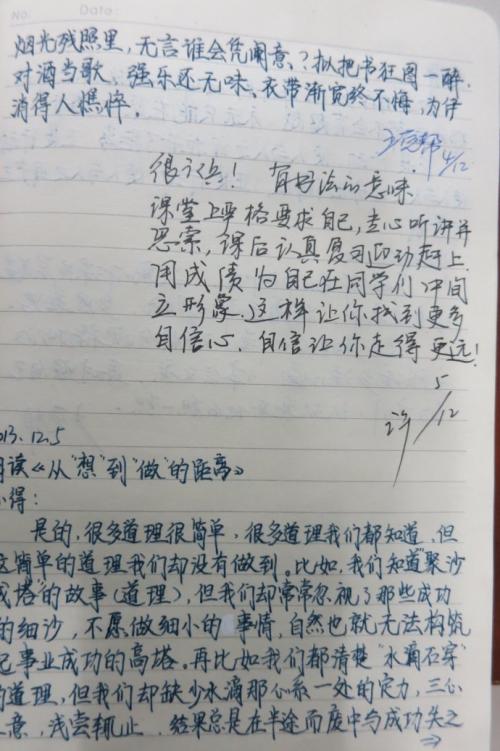 No:   Date:
烟光残照里，无言谁会凭阑意？拟把书狂图一醉，
对酒当歌、强乐还无味、衣带渐宽终不悔，为伊
消得人憔悴。
4/12
很认真！ 有好法的意味
课堂上严格要求自己，去心听讲并
思索，课后认真复习 功赶上
用成绩为自己在同学们中间
立形象，这样让你找到更多
自信心，自信让你走得更远！
许 5/12
013.12.5
读《从“想”到“做”的距离》
得：
是的，很多道理很简单，很多道理我们都知道，但
这简单的道理我们却没有做到。比如，我们知道“聚沙
成塔”的故事（道理），但我们却常常忽视了那些成功
的细沙，不愿做细小的事情，自然也就无法构筑
起事业成功的高塔。再比如我们都清楚“水滴石穿”
的道理，但我们却缺少水滴那心系一处的定力，三心
二意，浅尝辄止，结果总是在半途而废中与成功失之